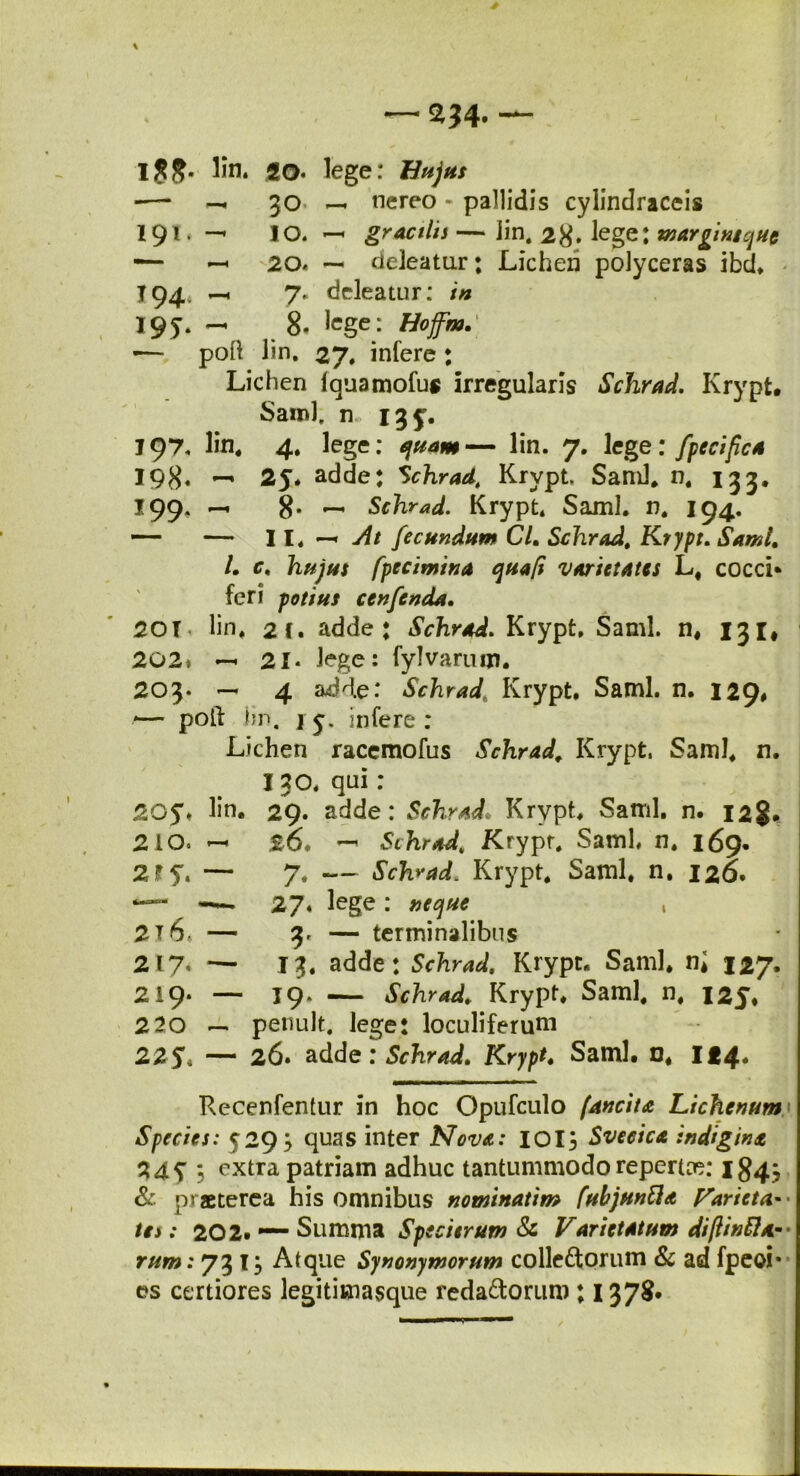 — 234. —
188. lin. 20. lege: Hujus
— — 30 — nereo - pallidis cylindraceis
191. — 10. — gracilis — lin. 28. lege: margineque
— — 20. — deleatur: Lichen polyceras ibd.
194. — 7. deleatur: in
195. — 8. lege: Hoffm.
— poſt lin. 27. inſere:
Lichen ſquamoſus irregularis Schrad. Krypt.
Saml. n 135.
197. lin. 4. lege: quam — lin. 7. lege: ſpecifica
198. — 25. adde: Schrad. Krypt. Saml. n. 133.
199. — 8. — Schrad. Krypt. Saml. n. 194.
— — 11. — At ſecundum Cl. Schrad. Krypt. Saml.
l. c. hujus ſpecimina quaſi varietates L. cocci-
feri potius cenſenda.
201 lin. 21. adde: Schrad. Krypt. Saml. n. 131.
202. — 21. lege: ſylvarum.
203. — 4 adde: Schrad. Krypt. Saml. n. 129.
— poſt lin. 15. inſere:
Lichen racemoſus Schrad. Krypt. Saml. n.
130. qui:
205. lin. 29. adde: Schrad. Krypt. Saml. n. 128.
210. — 26. — Schrad. Krypt. Saml. n. 169.
215. — 7. — Schrad. Krypt. Saml. n. 126.
— — 27. lege: neque
216. — 3. — terminalibus
217. — 13. adde: Schrad. Krypt. Saml. n. 127.
219. — 19. — Schrad. Krypt. Saml. n. 125.
220 — penult. lege: loculiferum
225. — 26. adde: Schrad. Krypt. Saml. n. 124.
Recenſentur in hoc Opuſculo ſancitæ Lichenum
Species: 529; quas inter Novæ: 101; Svecicæ indiginæ
345; extra patriam adhuc tantummodo repertæ: 184;
& præterea his omnibus nominatim ſubjunctæ Varieta-
tes: 202. — Summa Specierum & Varietatum diſtincta-
rum: 731; Atque Synonymorum collectorum & ad ſpeci-
es certiores legitimasque redactorum: 1378.